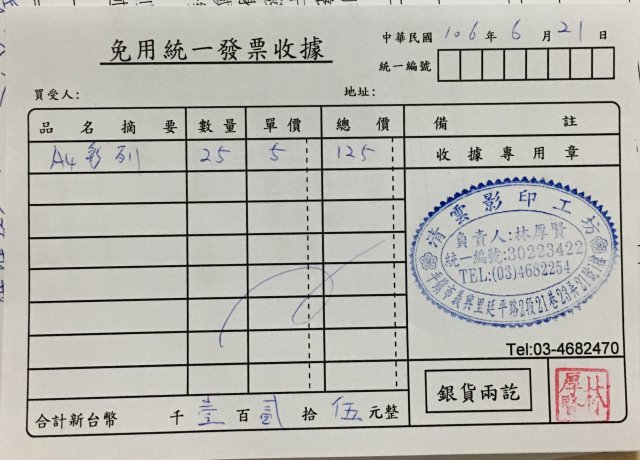 免用統一發票收據
中華民國 106 年 6 月 21 日
統一編號
買受人:
地址:
品名摘要 數量 單價 總價 備註
A4彩列 25 5 125 收據專用章
清雲影印工坊
負責人:林厚賢
統一編號:30223422
TEL:(03)4682254
平鎮市義興里延平路2段21巷23弄21號1樓
Tel:03-4682470
銀貨兩訖
林厚賢
合計新台幣 千 壹 百 貳 拾 伍 元整